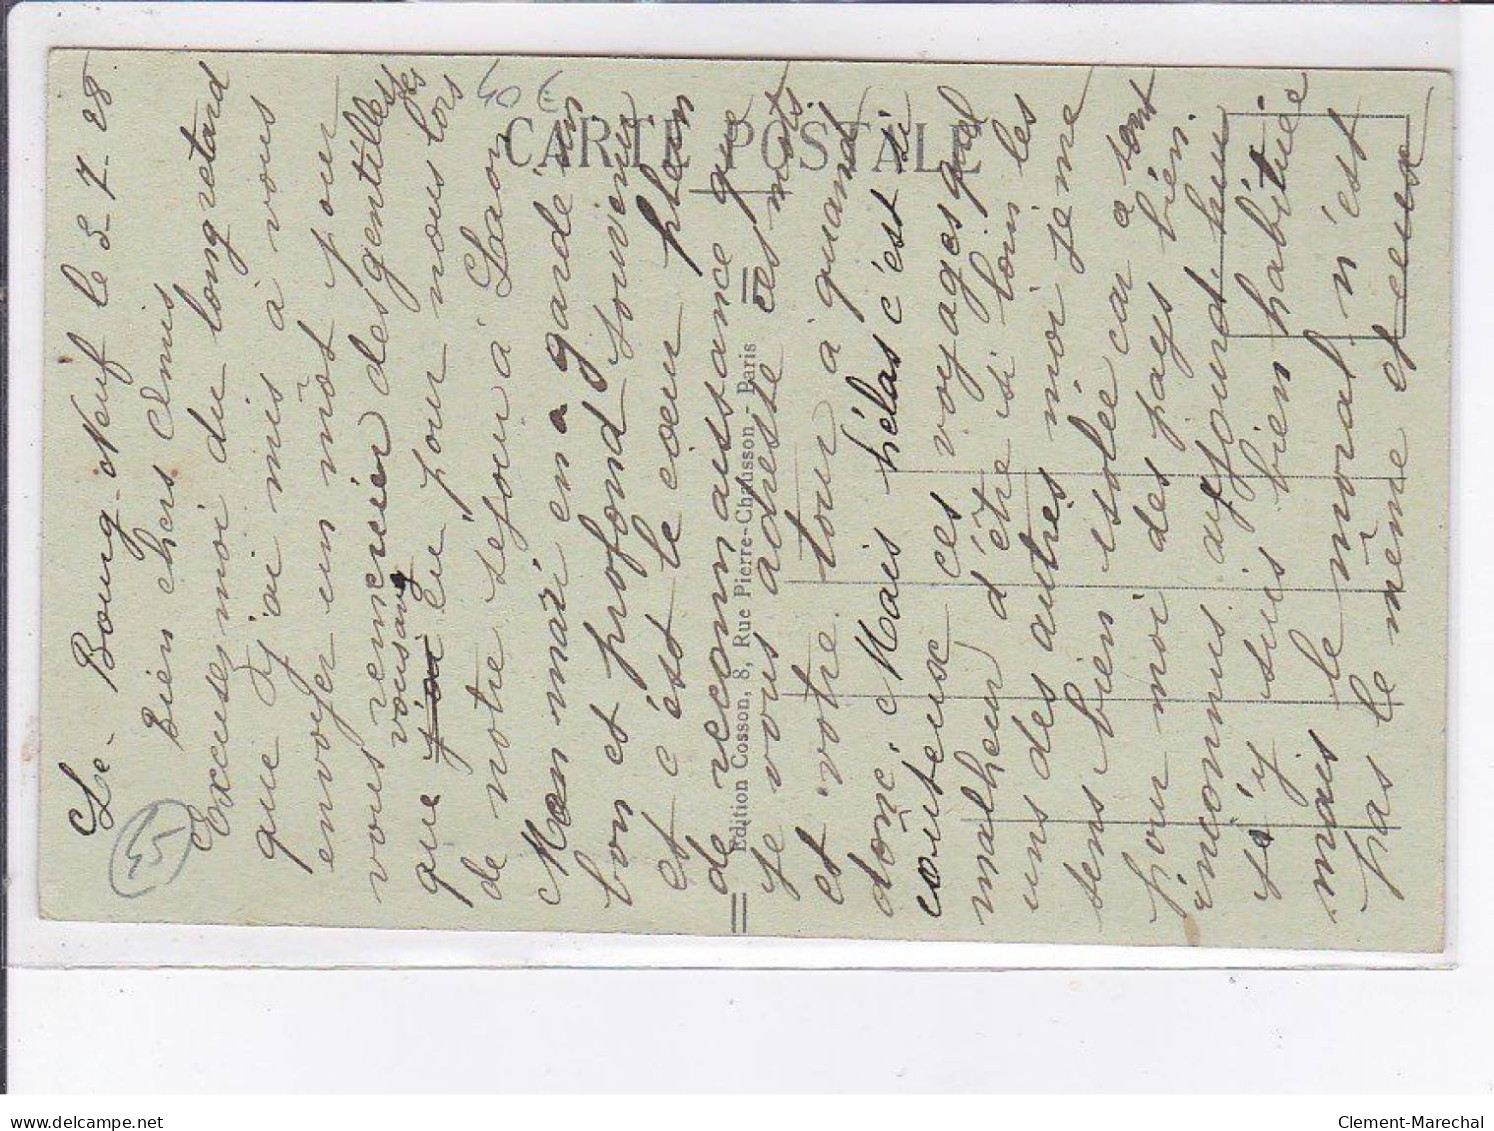 Le Bourg-Neuf le 5-7-28
Bien chers Amis
Excusez moi du long retard
que j'ai mis à vous
envoyer un môt pour
vous remercier des gentillesses
que vous avez eu pour nous lors
de notre séjour à Laon
Mon mari en a gardé un
bon et profond souvenir
et c'est le cœur plein
de reconnaissance que
je vous adresse ces mots.
et votre tour à quand
donc. Mais hélas c'est si
couteux ces voyages quel
malheur d'être si loin les
uns des autres moi je me
sens bien isolée car a sont
pour moi des pays bien
inconnus aujourd'hui
j'y suis bien habituée
mais le moral n'est
pas le même et ceux
CARTE POSTALE
Edition Cosson, 8, Rue Pierre-Chausson - Paris
40 €
45
www.delcampe.net
Clement-Marechal